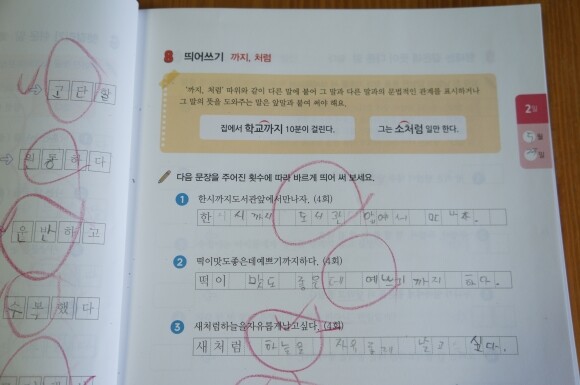 8 띄어쓰기 까지, 처럼
'까지, 처럼' 따위와 같이 다른 말에 붙어 그 말과 다른 말과의 문법적인 관계를 표시하거나
그 말의 뜻을 도와주는 말은 앞말과 붙여 써야 해요.
집에서 학교까지 10분이 걸린다.
그는 소처럼 일만 한다.
2일
월
일
다음 문장을 주어진 횟수에 따라 바르게 띄어 써 보세요.
1 한시까지도서관앞에서만나자. (4회)
한 시까지 도서관 앞에서 만나자.
2 떡이맛도좋은데예쁘기까지하다. (4회)
떡이 맛도 좋은데 예쁘기까지 하다.
3 새처럼하늘을자유롭게날고싶다. (4회)
새처럼 하늘을 자유롭게 날고 싶다.
고단할
하다
운반하고
했다